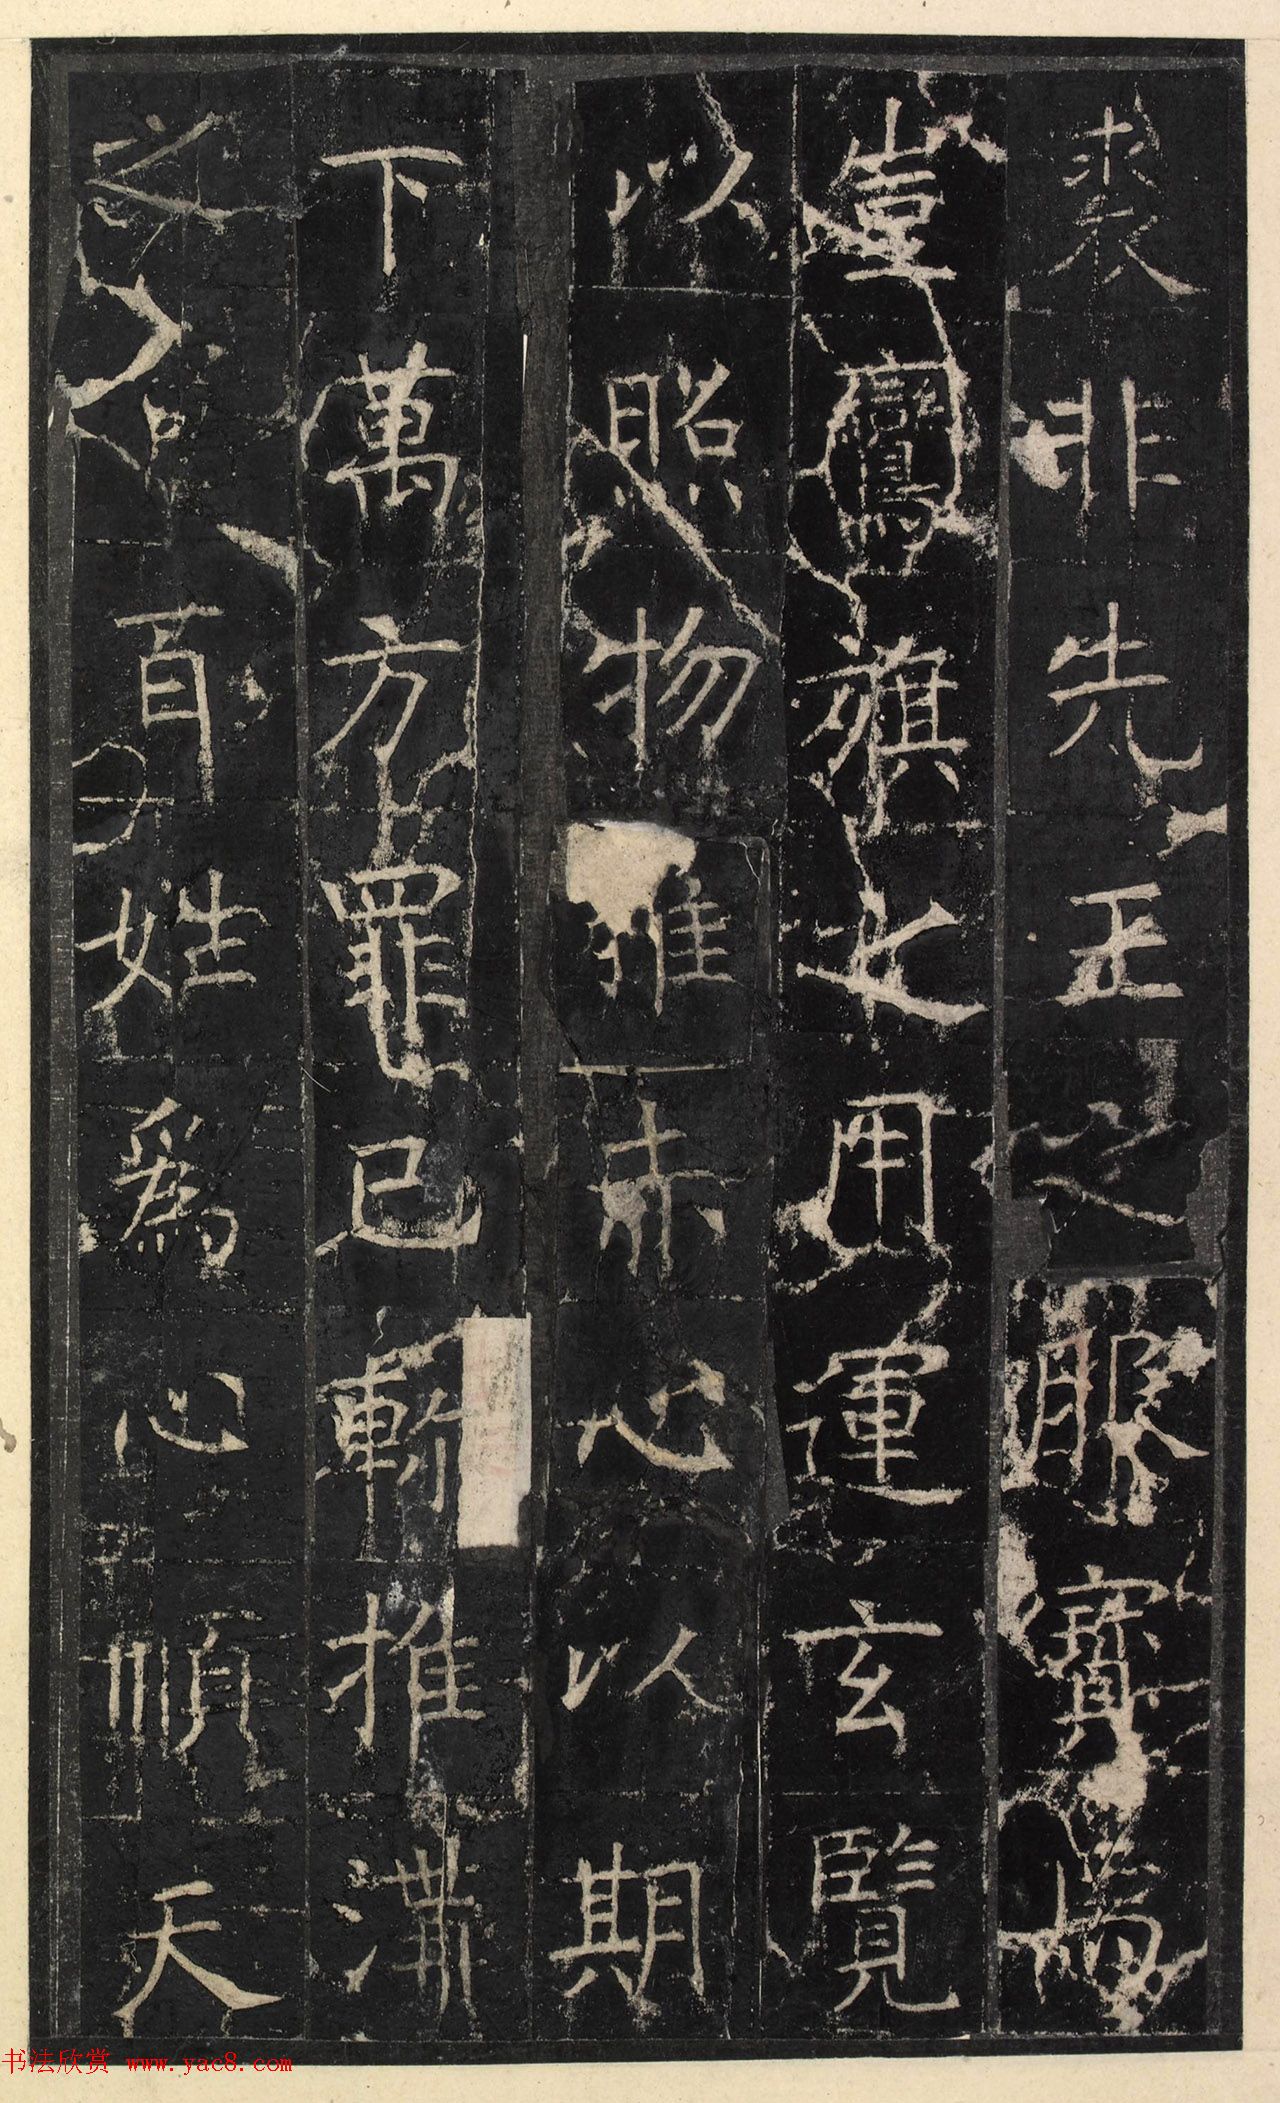 裘非先王之服寶
臺鸞旗之用運玄覽
以照物推赤心以期
下萬方罪己
慙推溝
之
百姓爲心順天
书法欣赏 www.yac8.com